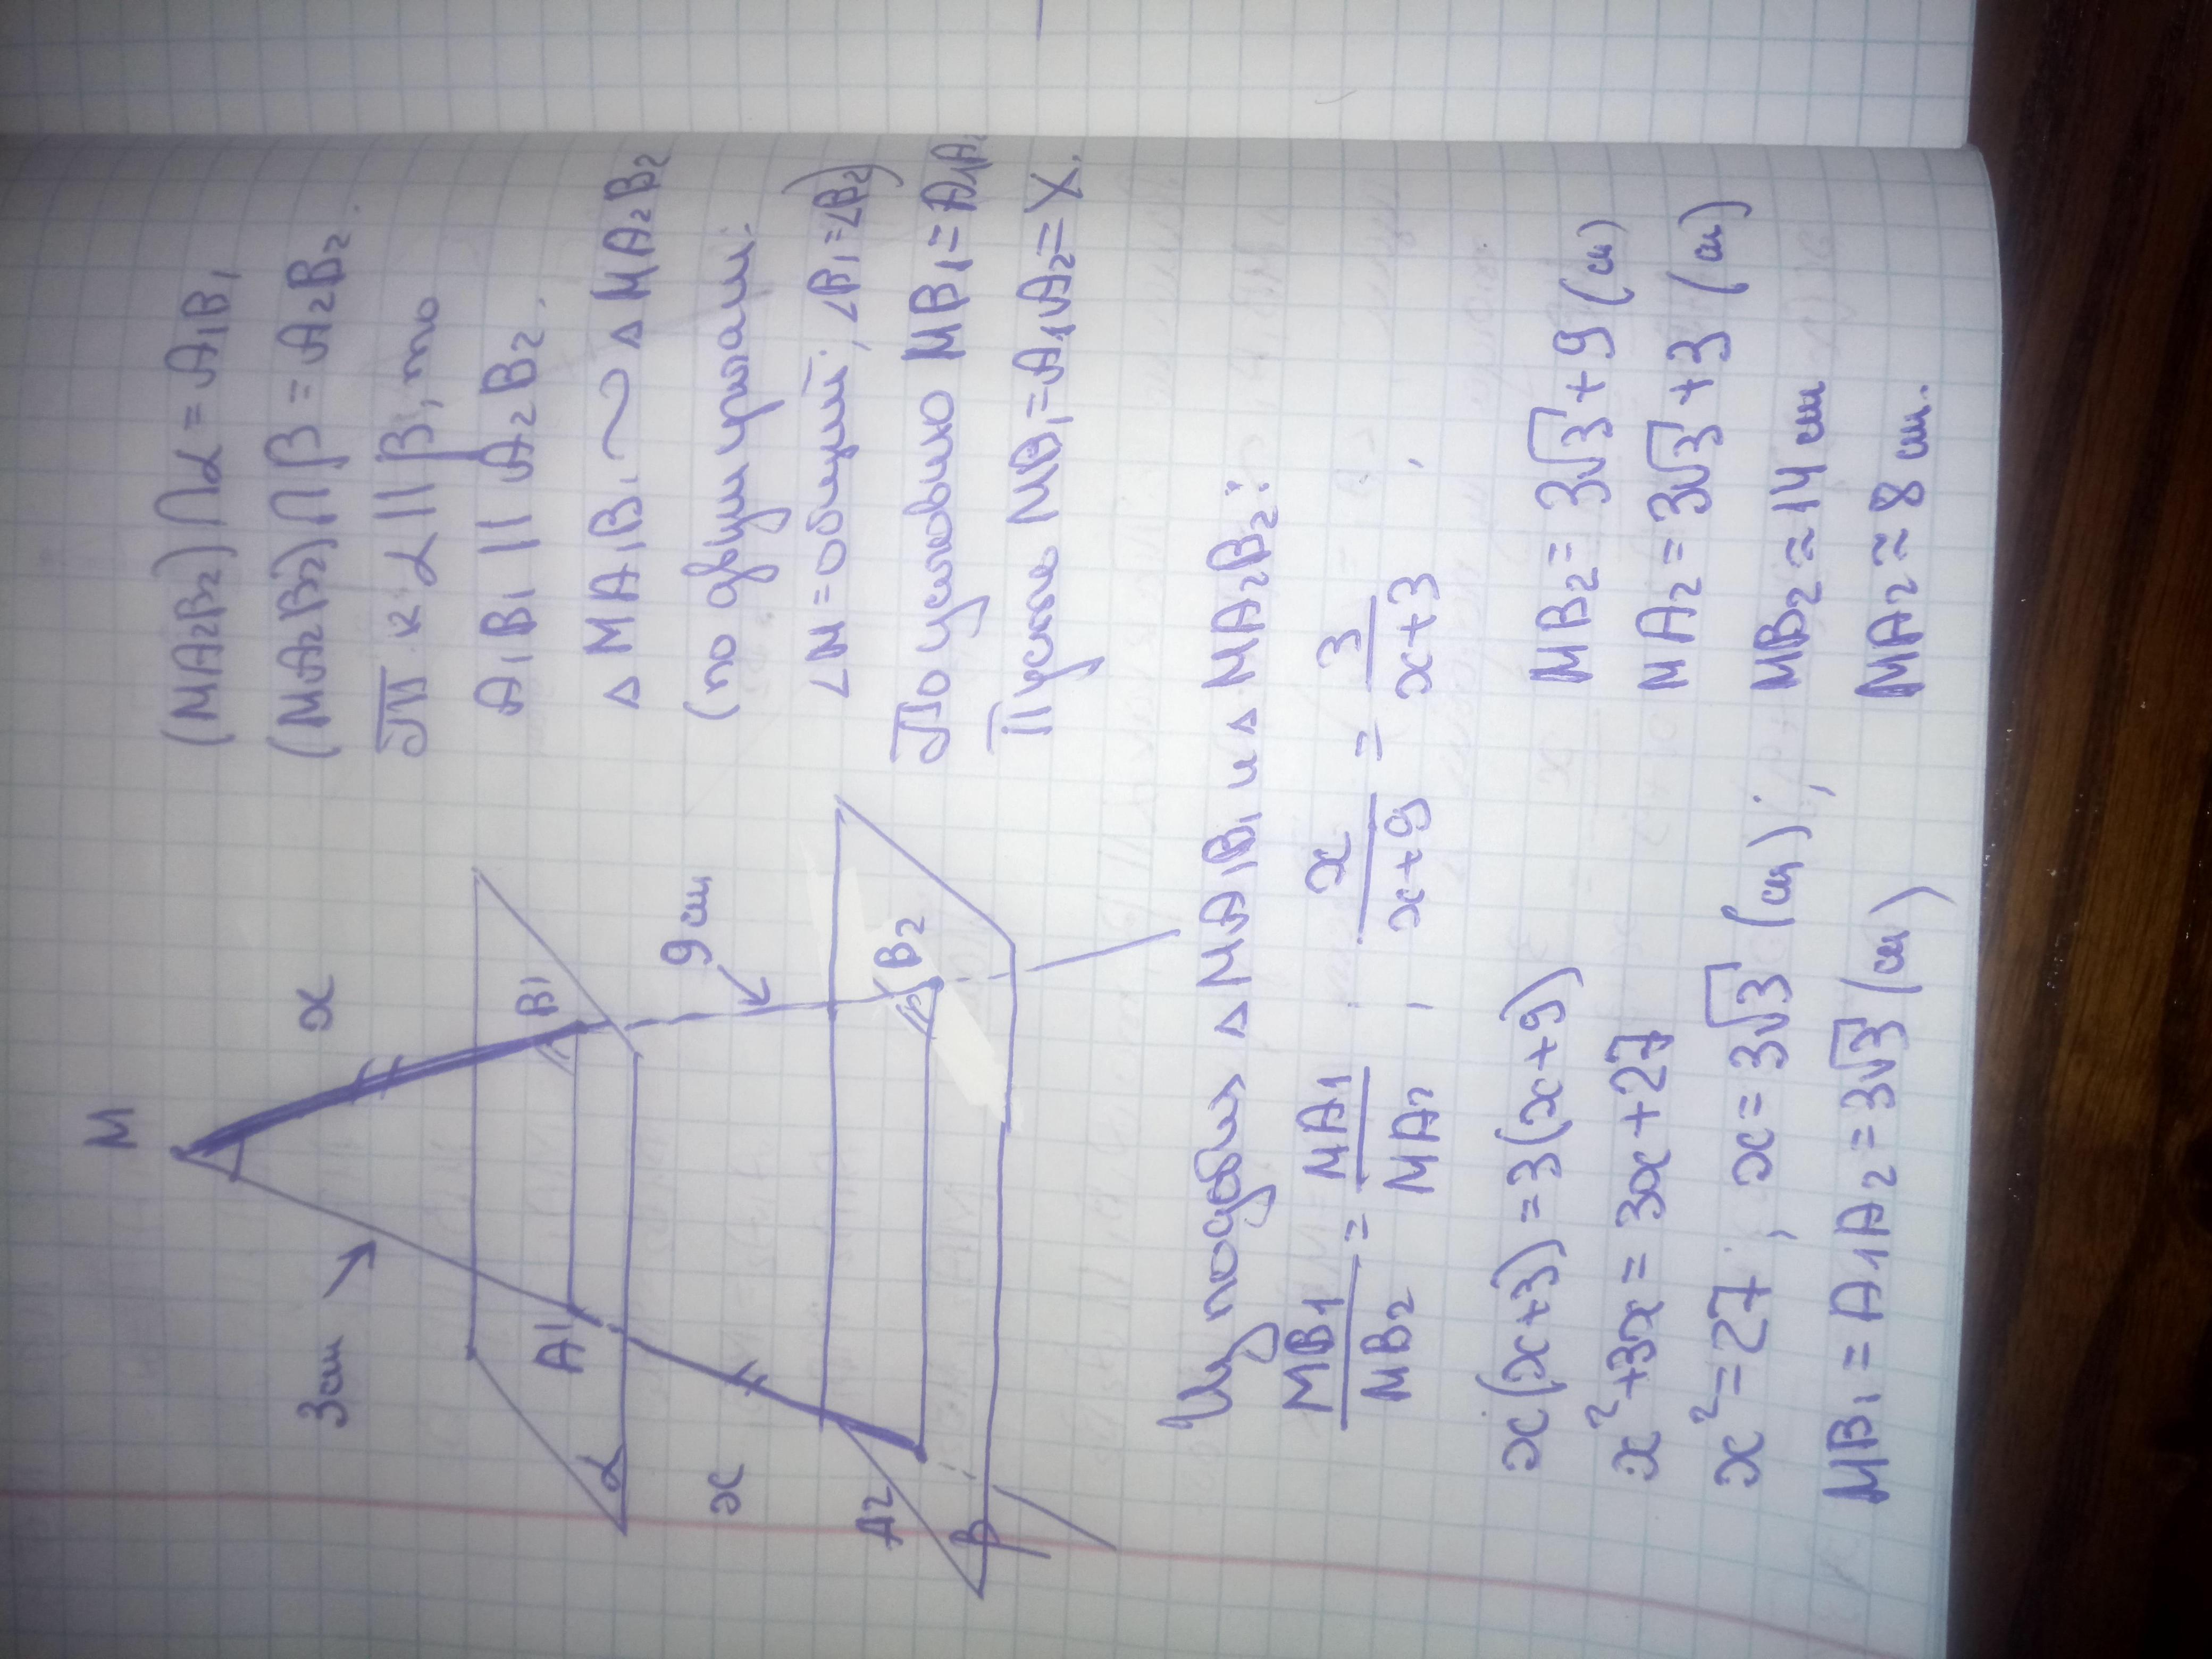 M
x
3см
A1
B1
α
9см
x
A2
B2
β
(MA2B2)∩α = A1B1
(MA2B2)∩β = A2B2.
Т к α || β, то
A1B1 || A2B2.
△ MA1B1 ∼ △ MA2B2
(по двум углам:
∠M = общий; ∠B1=∠B2)
По условию MB1=A1A2
Пусть MB1=A1A2=X.
Из подобия △ MA1B1 и △ MA2B2:
MB1/MB2 = MA1/MA2, x/x+9 = 3/x+3,
x(x+3) = 3(x+9)
x²+3x = 3x+27
x²=27, x = 3√3 (см);
MB1 = A1A2 = 3√3 (см)
MB2 = 3√3+9 (см)
MA2 = 3√3+3 (см)
MB2 ≈ 14 см
MA2 ≈ 8 см.